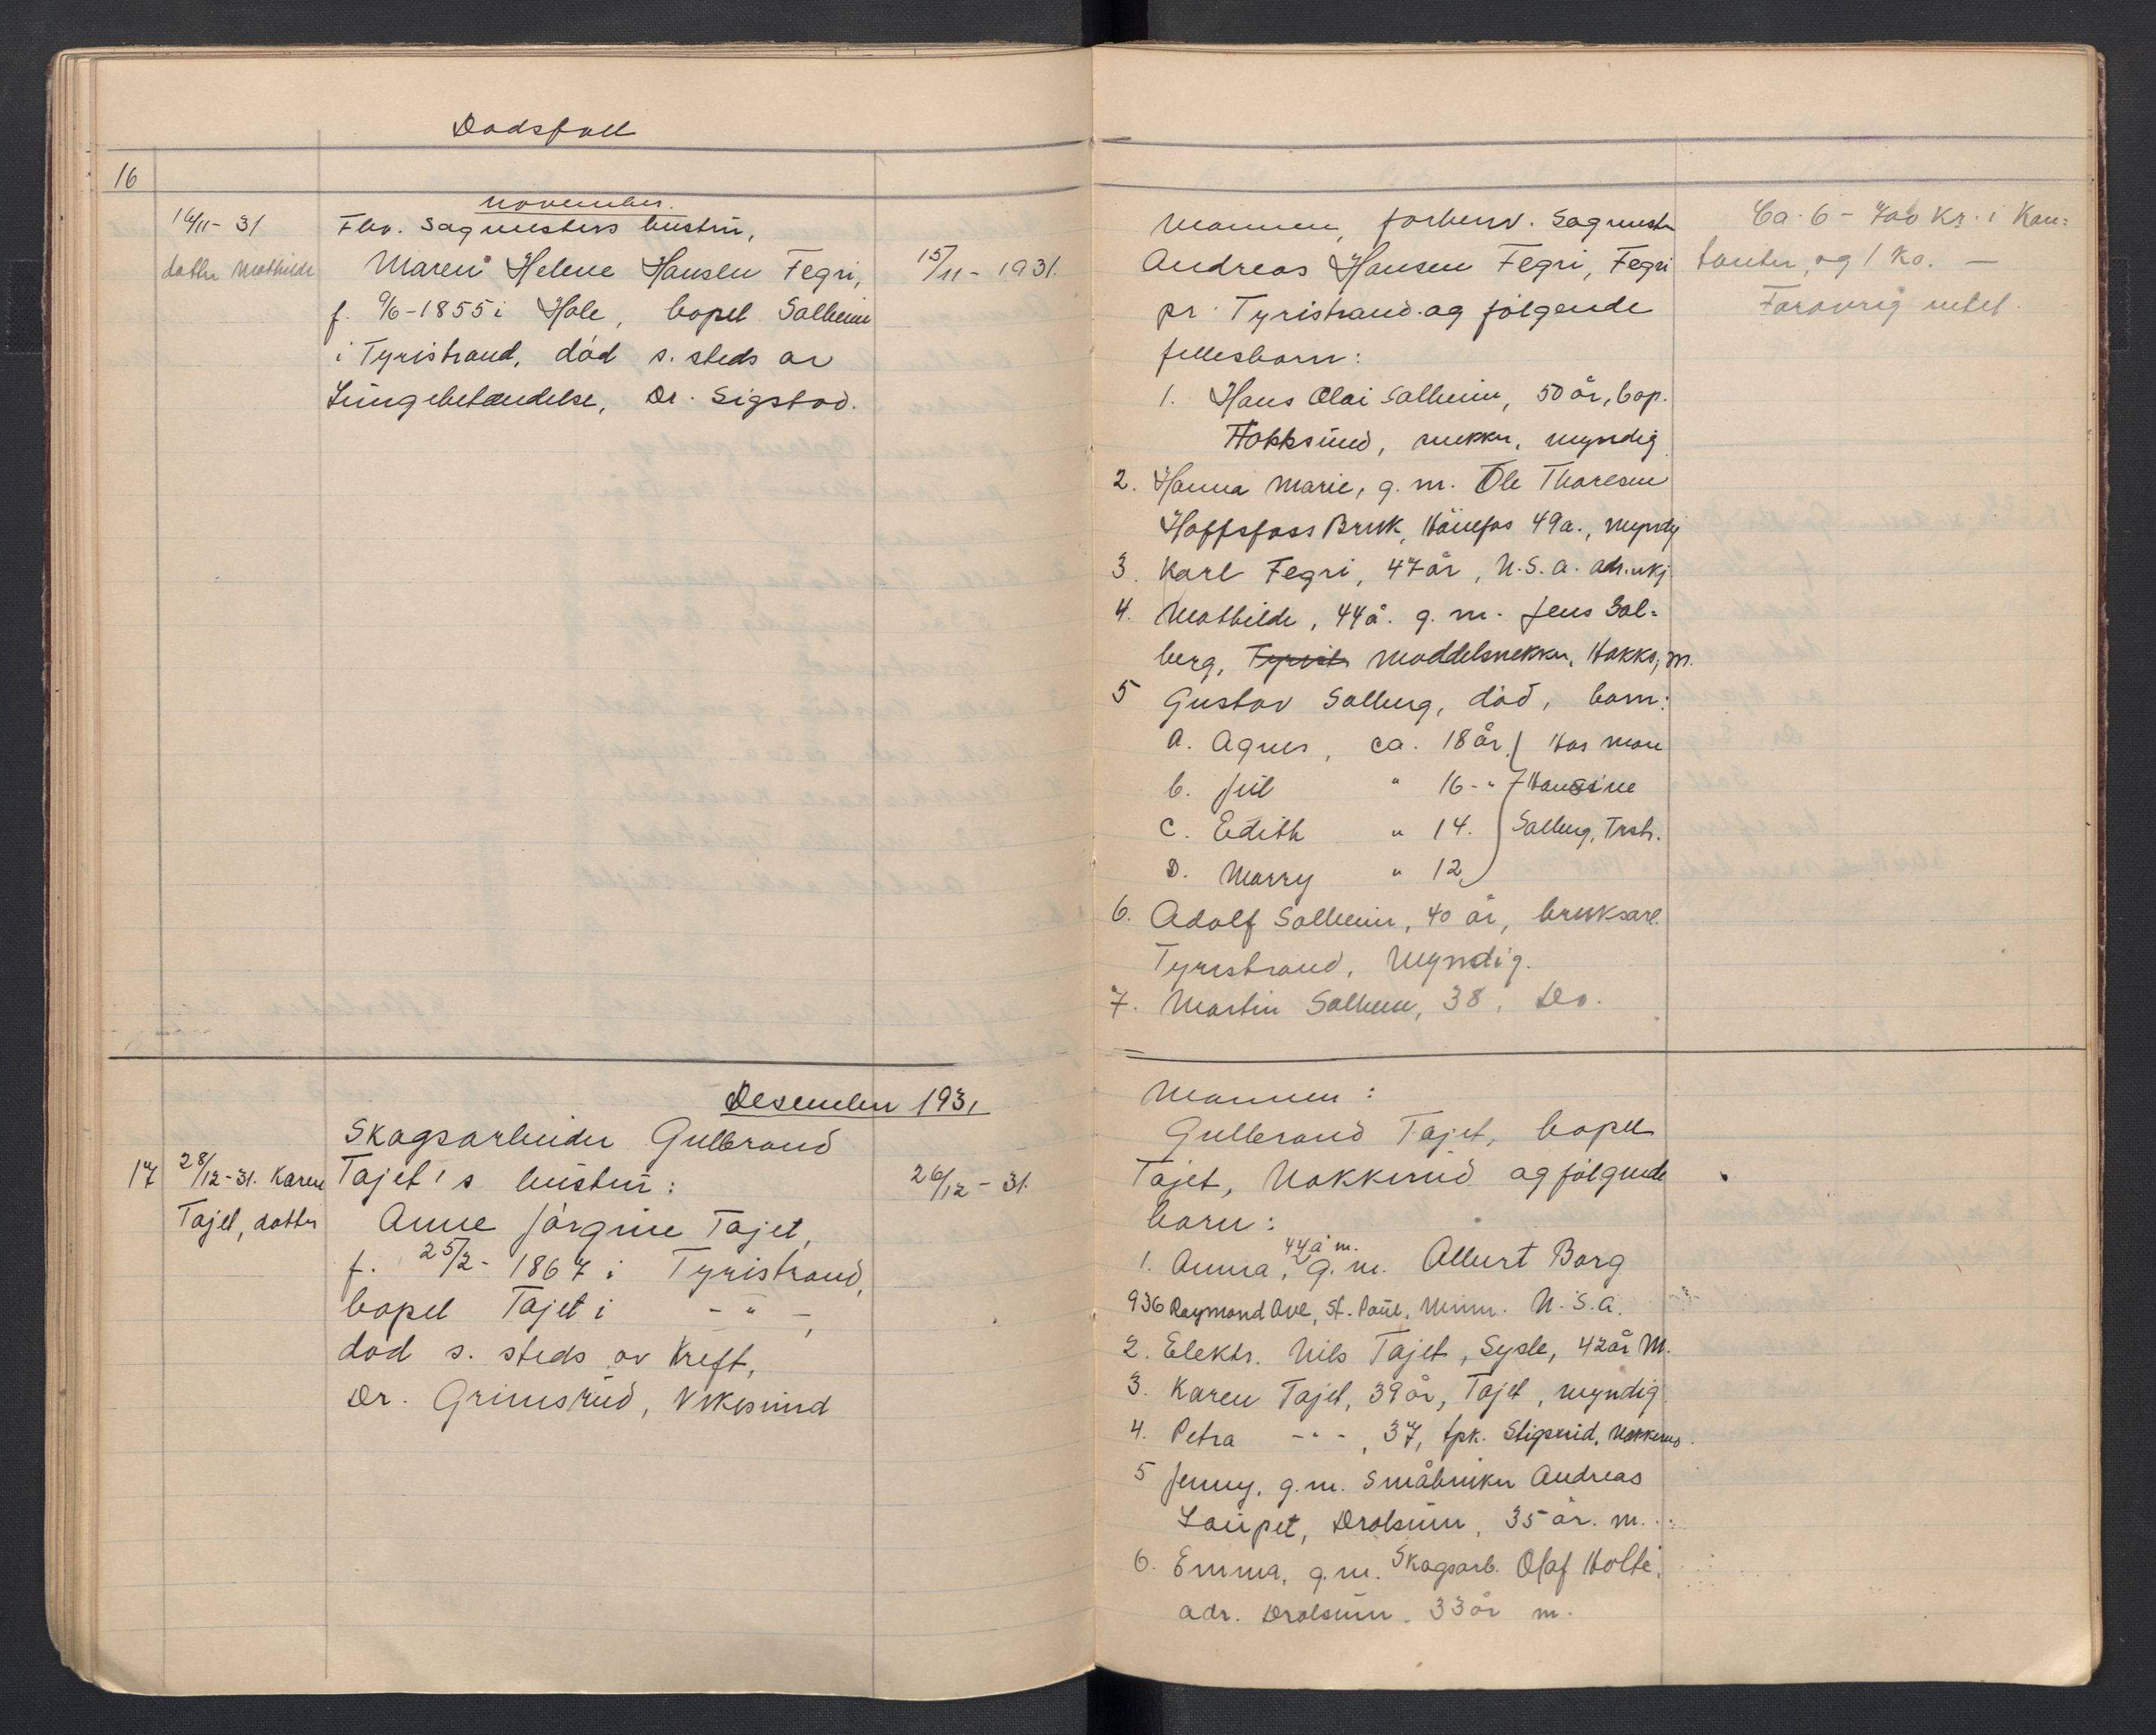 Dødsfall
16
November.
16/11-31
datter Mathilde
Fhv. Sagmesters hustru,
Maren Helene Hansen Fegri,
f. 9/6-1855 i Hole, bopel Solheim
i Tyristrand, död s. steds av
Lungebetændelse, Dr. Sigstad.
15/11-1931.
Mannen, forhenv. Sagmester
Andreas Hansen Fegri, Fegri
pr. Tyristrand og fölgende
fellesbarn:
1. Hans Olai Solheim, 50 år, bop.
Hokksund, snekker, myndig
2. Hanna Marie, g.m. Ole Thoresen
Hoffsfoss Bruk, Hönefos 49 a., myndig
3. Karl Fegri, 47 år, U.S.A. adr. ukj.
4. Mathilde, 44 å. g.m. Jens Sol=
berg, Tyristr Moddelsnekker, Hokks, m.
5 Gustav Solberg, död, barn:
A. Agnes, ca. 18 år. Hos mor
b. Jul " 16 - " Hansine
C. Edith " 14. Solberg, Trstr.
D. Marry " 12
6. Adolf Solheim, 40 år, bruksarb.
Tyristrand, Myndig.
7. Martin Solheim, 38, Do.
Ca. 6-700 Kr. i Kon=
tanter, og 1 Ko. —
Forøvrig intet.
Desember 1931
17
28/12-31. Karen
Tajet, datter
Skogsarbeider Gulbrand
Tajet's hustru:
Anne Jörgine Tajet,
f. 25/2-1867 i Tyristrand,
bopel Tajet i - " -,
död s. steds av Kreft,
Dr. Grimsrud, Vikersund
26/12-31.
Mannen:
Gulbrand Tajet, bopel
Tajet, Nakkerud og fölgende
barn:
44 å m.
1. Anna, g.m. Albert Borg
936 Raymond Ave, St. Paul, Minn. U.S.A.
2. Elektr. Nils Tajet, Sysle, 42 år M.
3. Karen Tajet, 39 år, Tajet, myndig
4. Petra - " -, 37, tpk. Stigerud, Nakkerud.
5 Jenny, g.m. Småbruker Andreas
Laupet, Drolsum, 35 år. m.
6. Emma, g.m. Skogsarb. Olaf Holte,
adr. Drolsum. 33 år m.